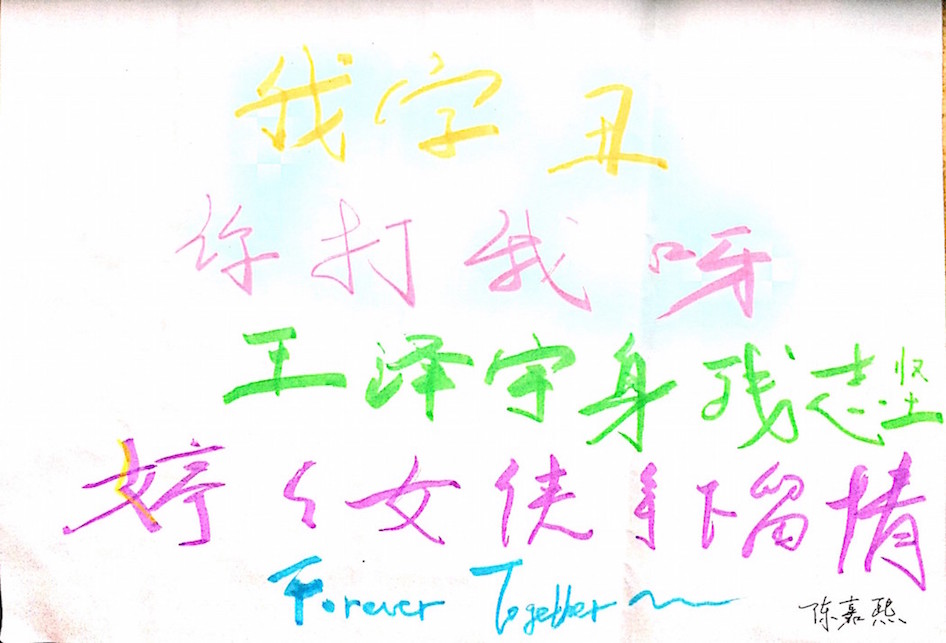 我字丑
你打我呀
王泽宇身残志坚
婷々女侠手下留情
Forever Together~
陈嘉熙